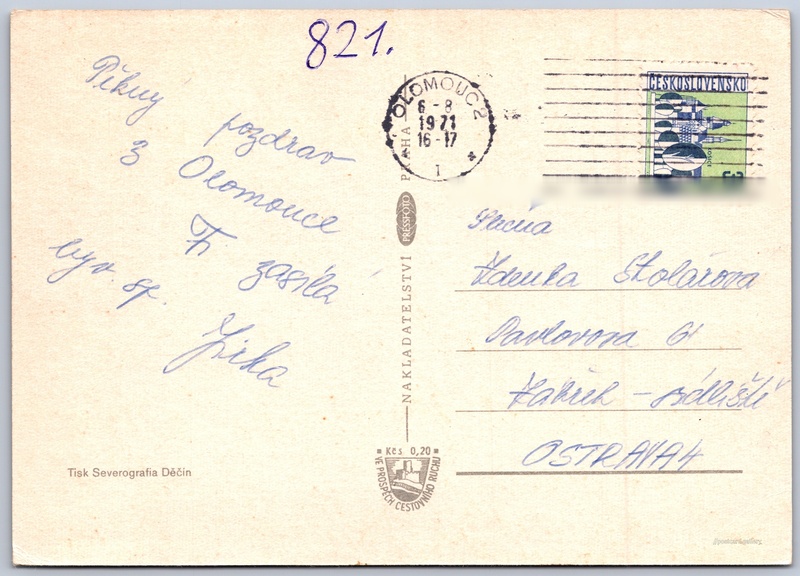 821.
Pěkný
pozdrav
z Olomouce
Ti zasílá
býv. sp.
Jirka
Tisk Severografia Děčín
NAKLADATELSTVÍ PRESSFOTO PRAHA
Kčs 0,20
VE PROSPĚCH CESTOVNÍHO RUCHU
OLOMOUC 2
6-8
1971
16-17
1
ČESKOSLOVENSKO
Slečna
Zdenka Stolárová
Pavlovova 61
Zábřeh - sídliště
OSTRAVA 4